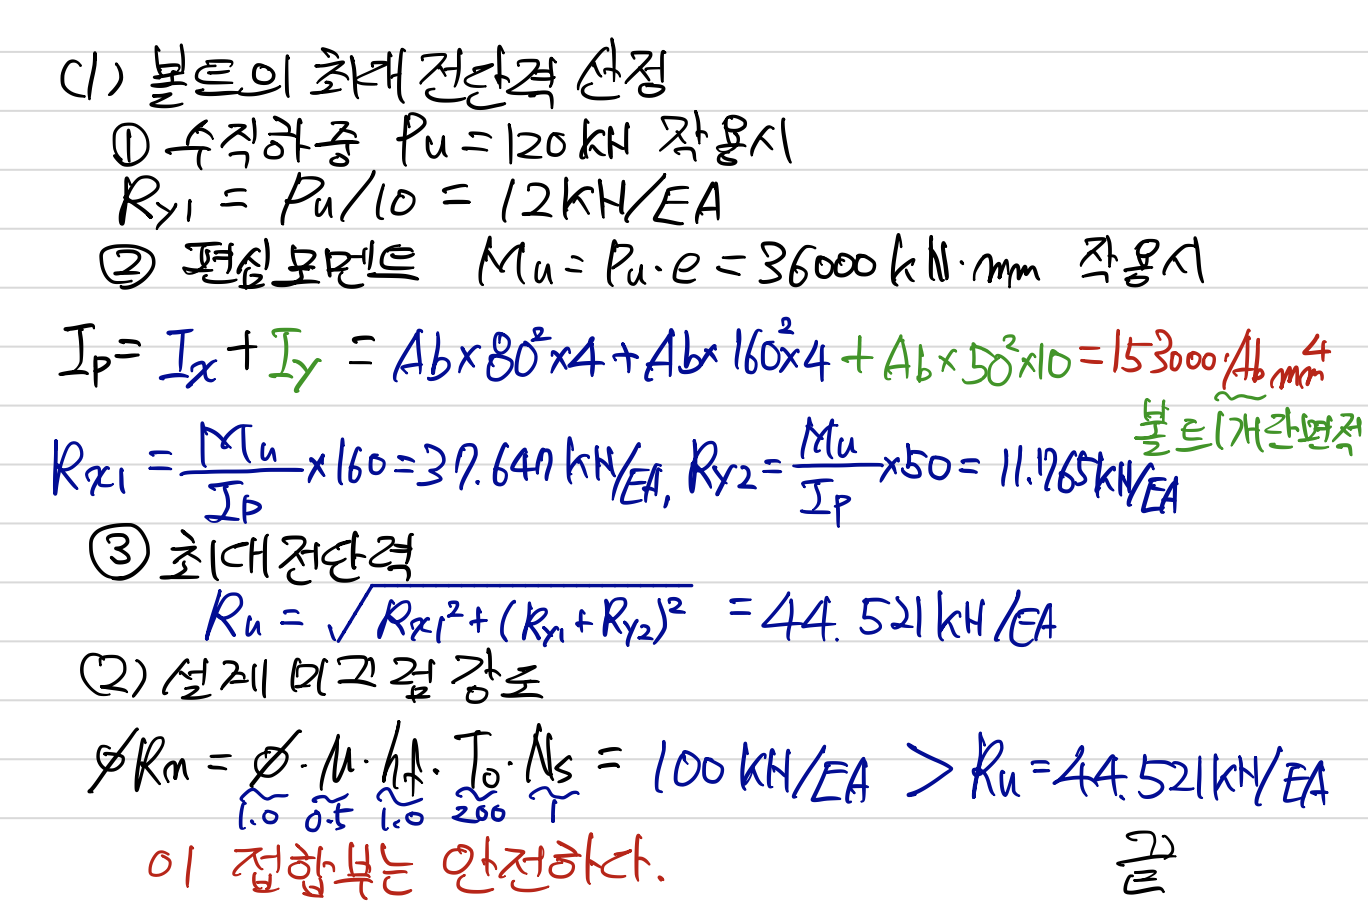 (1) 볼트의 최대 전단력 산정
① 수직하중 Pu = 120 kN 작용시
Ry1 = Pu/10 = 12KN/EA
② 편심모멘트 Mu = Pu·e = 36000 kN·mm 작용시
Ip = Ix + Iy = Ab×80²×4 + Ab×160²×4 + Ab×50²×10 = 153000·Ab mm⁴
볼트1개단면적
Rx1 = Mu/Ip ×160 = 37.647 kN/EA, Ry2 = Mu/Ip ×50 = 11.765kN/EA
③ 최대전단력
Ru = √(Rx1² + (Ry1 + Ry2)²) = 44.521 kN/EA
(2) 설계 미끄럼 강도
φRn = φ·μ·hf·To·Ns = 100 kN/EA > Ru = 44.521kN/EA
1.0 0.5 1.0 200 1
이 접합부는 안전하다.
끝